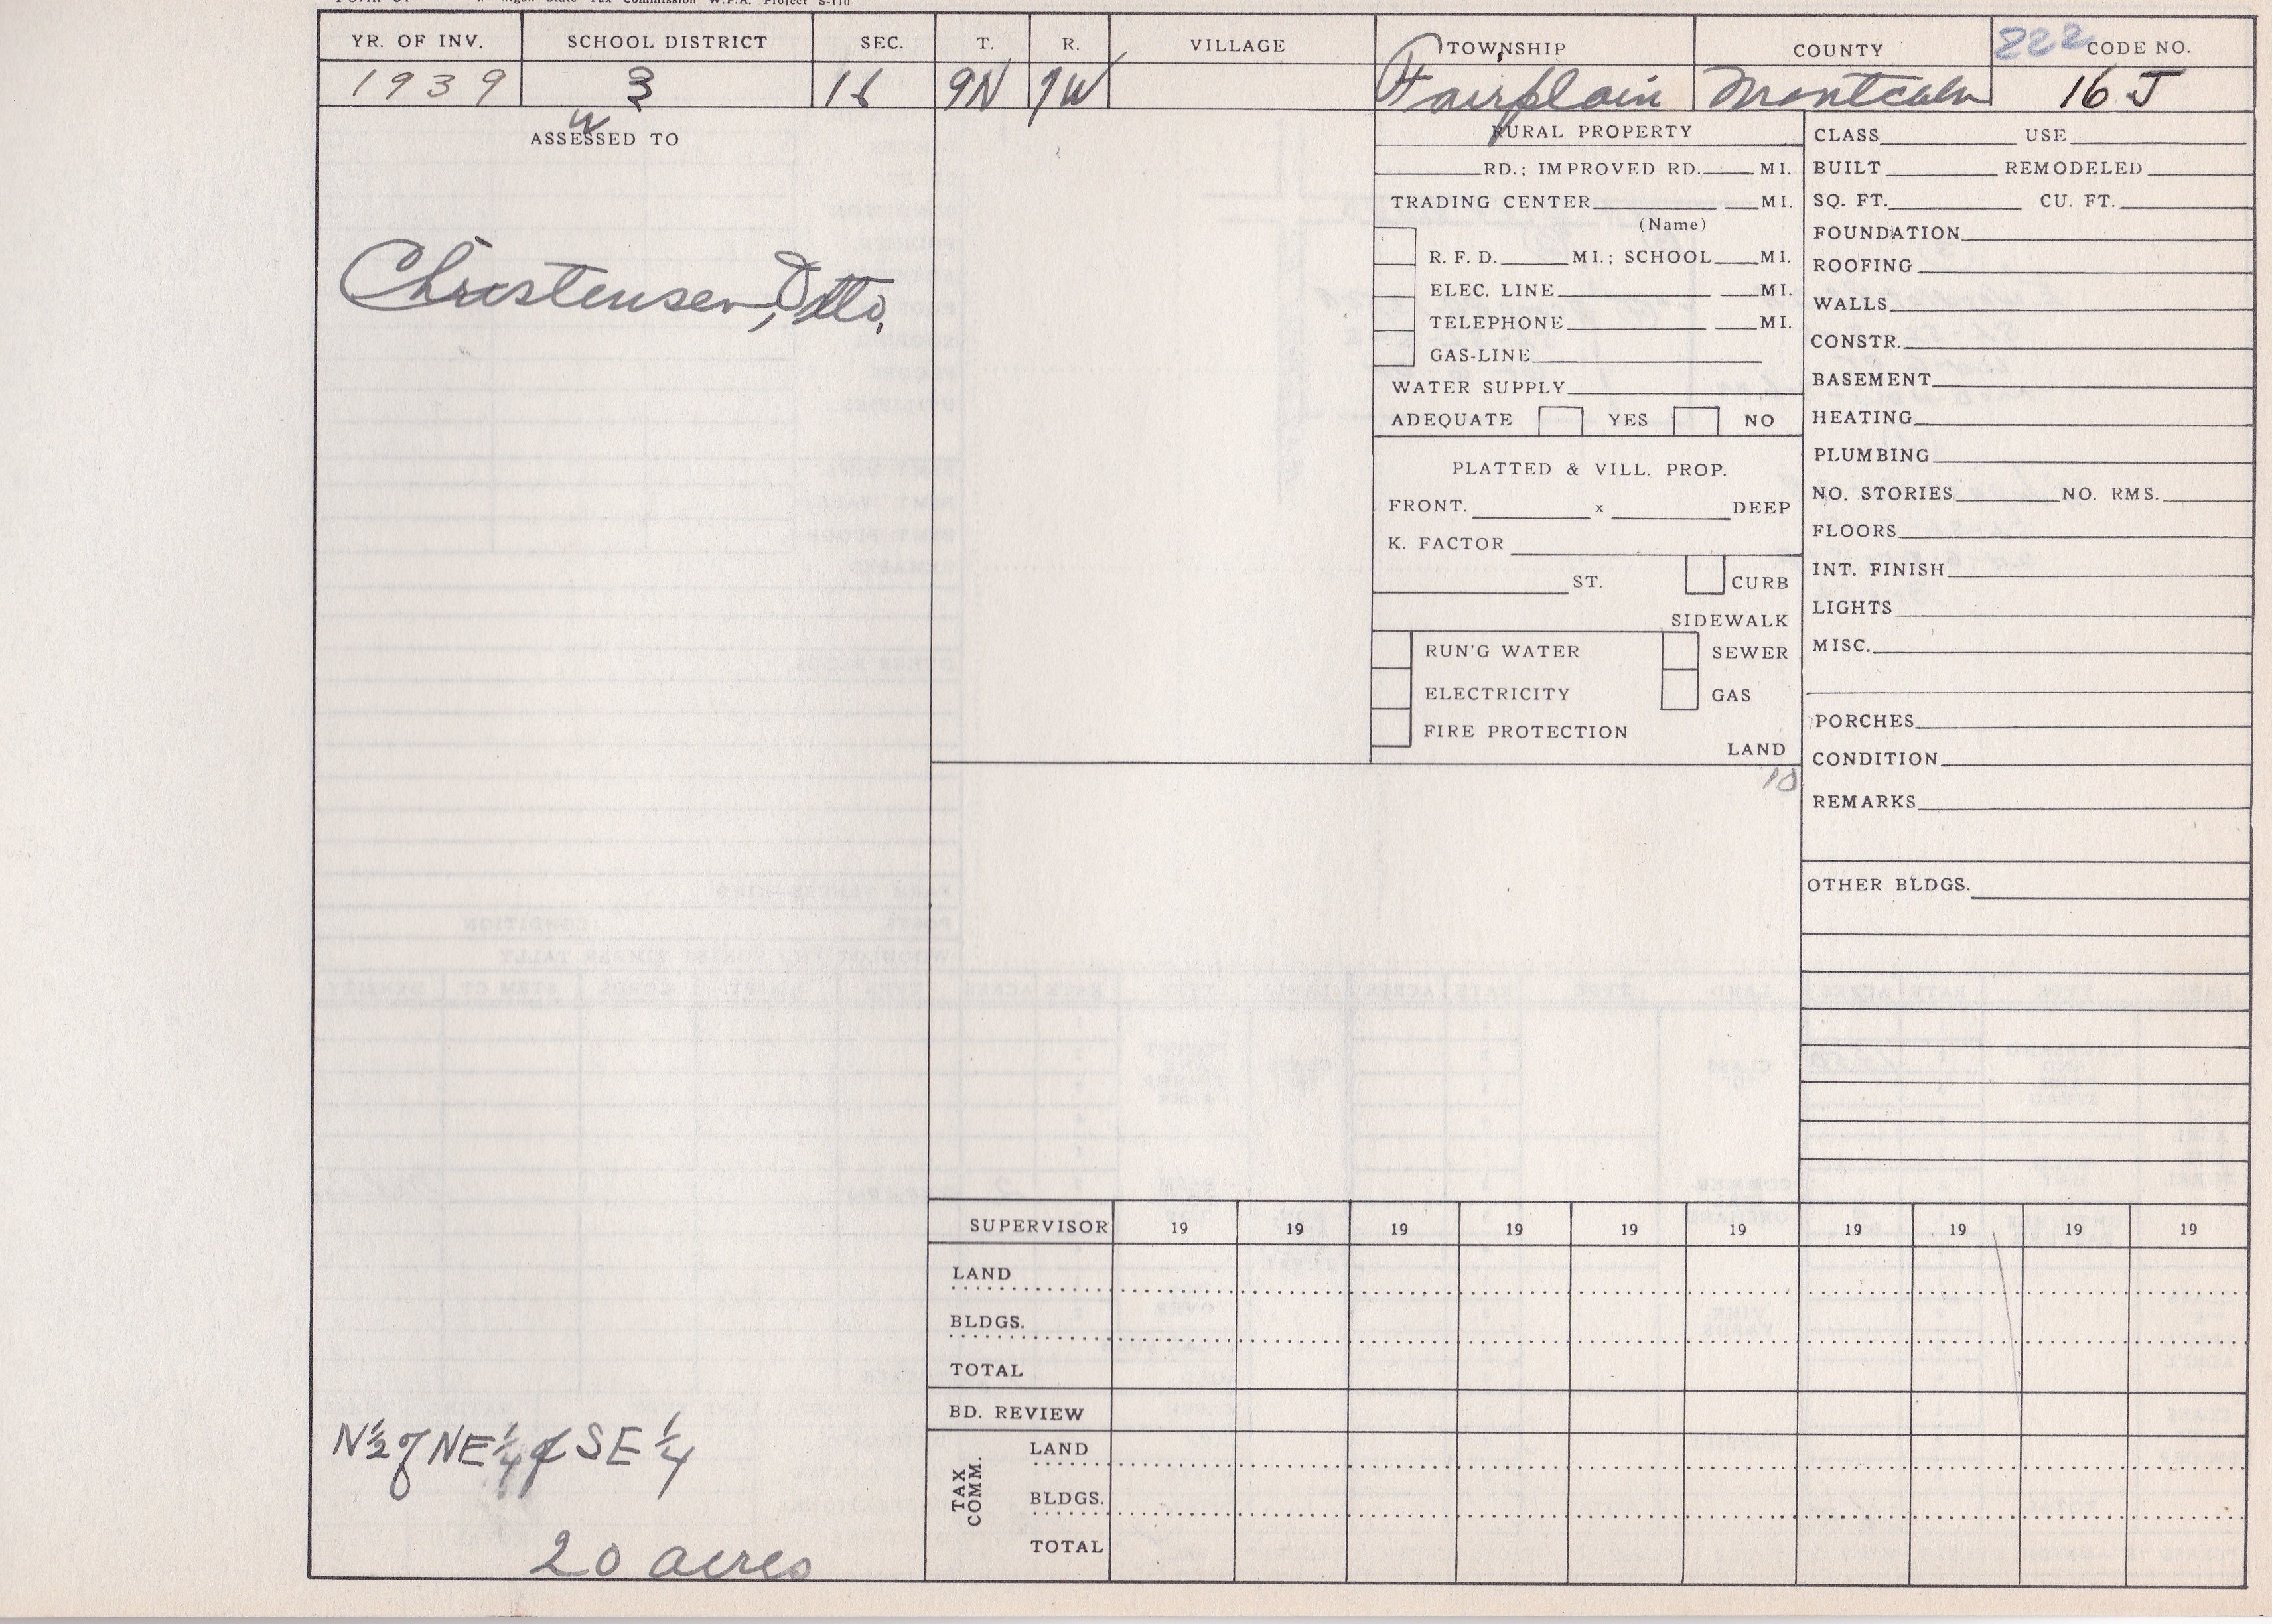 State Tax Commission W.P.A. Project S-110
YR. OF INV. SCHOOL DISTRICT SEC. T. R. VILLAGE TOWNSHIP COUNTY 222 CODE NO.
1939 3 16 9N 7W Fairplain Montcalm 16 J
ASSESSED TO
Christensen, Otto.
N½ of NE¼ of SE¼
20 acres
RURAL PROPERTY
RD.; IMPROVED RD. MI.
TRADING CENTER MI.
(Name)
R. F. D. MI.; SCHOOL MI.
ELEC. LINE MI.
TELEPHONE MI.
GAS-LINE
WATER SUPPLY
ADEQUATE YES NO
PLATTED & VILL. PROP.
FRONT. x DEEP
K. FACTOR
ST. CURB
SIDEWALK
RUN'G WATER SEWER
ELECTRICITY GAS
FIRE PROTECTION
LAND
10
CLASS USE
BUILT REMODELED
SQ. FT. CU. FT.
FOUNDATION
ROOFING
WALLS
CONSTR.
BASEMENT
HEATING
PLUMBING
NO. STORIES NO. RMS.
FLOORS
INT. FINISH
LIGHTS
MISC.
PORCHES
CONDITION
REMARKS
OTHER BLDGS.
SUPERVISOR 19 19 19 19 19 19 19 19 19 19
LAND
BLDGS.
TOTAL
BD. REVIEW
TAX COMM.
LAND
BLDGS.
TOTAL